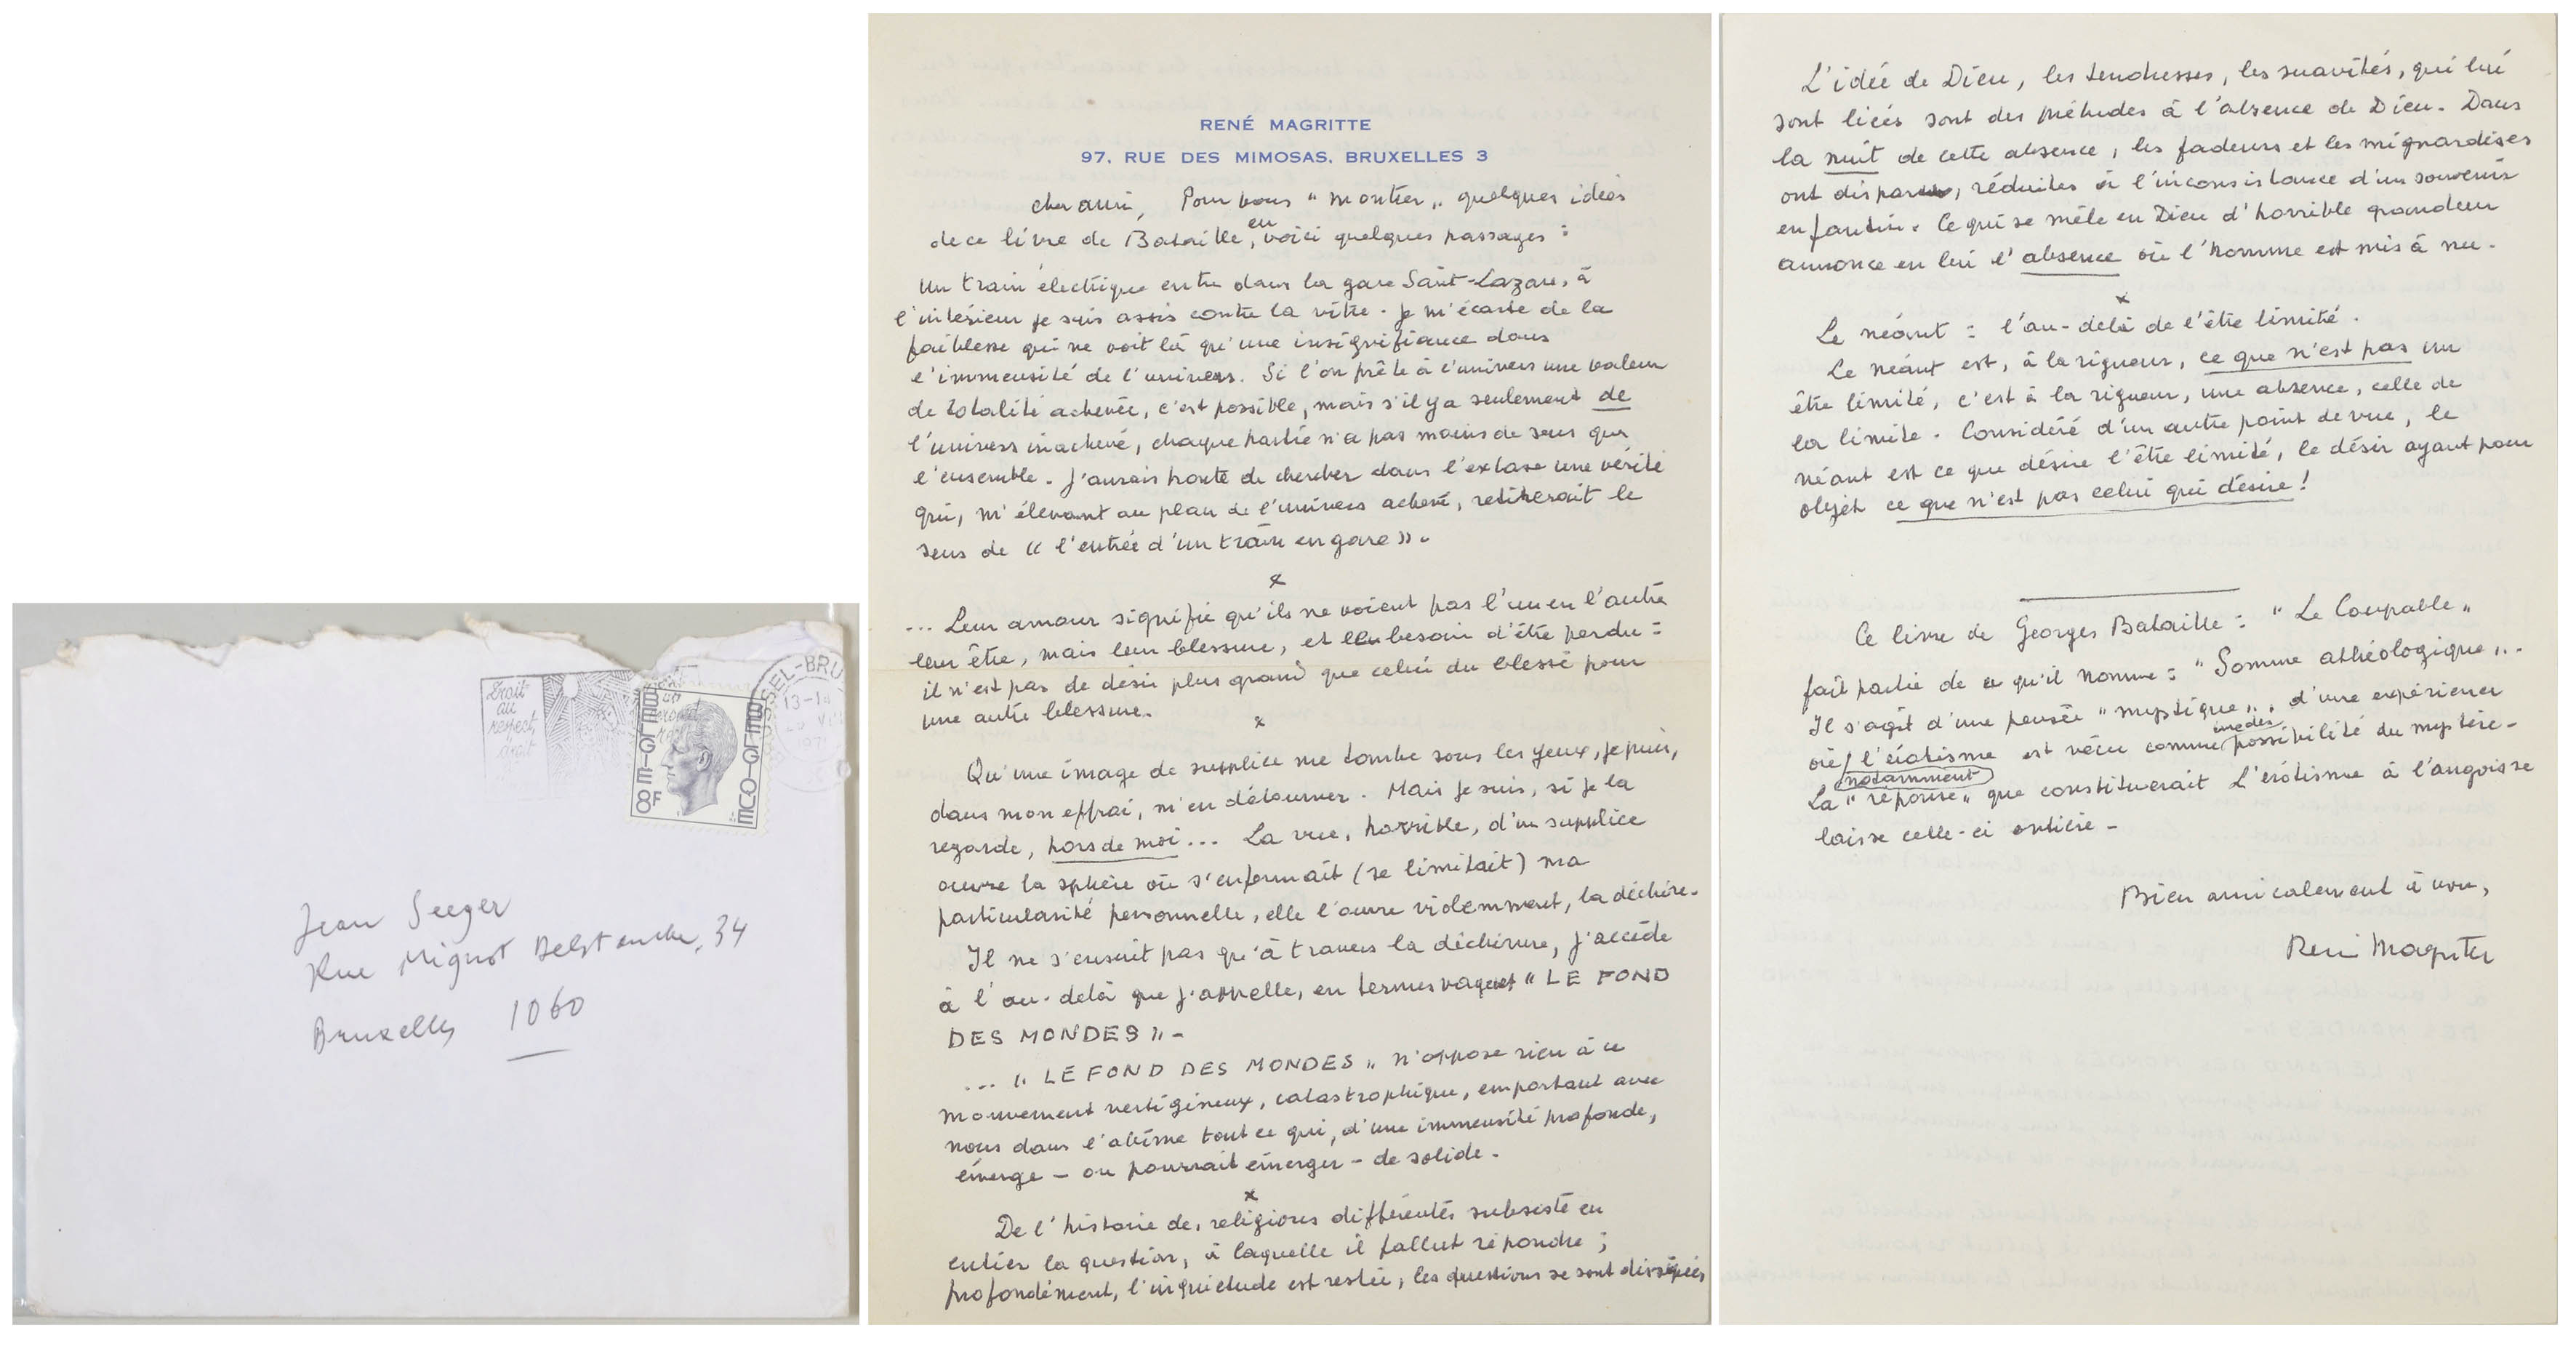 Jean Seeger
Rue Mignot Delstanche, 34
Bruxelles 1060
BELGIE BELGIQUE
8F
RENÉ MAGRITTE
97, RUE DES MIMOSAS, BRUXELLES 3
cher ami, Pour vous "montrer" quelques idées
de ce livre de Bataille, en voici quelques passages :
Un train électrique entre dans la gare Saint-Lazare, à
l'intérieur je suis assis contre la vitre. Je m'écarte de la
faiblesse qui ne voit là qu'une insignifiance dans
l'immensité de l'univers. Si l'on prête à l'univers une valeur
de totalité achevée, c'est possible, mais s'il y a seulement de
l'univers inachevé, chaque partie n'a pas moins de sens que
l'ensemble. J'aurais honte de chercher dans l'extase une vérité
qui, m'élevant au plan de l'univers achevé, retirerait le
sens de « l'entrée d'un train en gare ».
x
... Leur amour signifie qu'ils ne voient pas l'un en l'autre
leur être, mais leur blessure, et leur besoin d'être perdu :
il n'est pas de désir plus grand que celui du blessé pour
une autre blessure.
x
Qu'une image de supplice me tombe sous les yeux, je puis,
dans mon effroi, m'en détourner. Mais je suis, si je la
regarde, hors de moi ... La vue, horrible, d'un supplice
ouvre la sphère où s'enfermait (se limitait) ma
particularité personnelle, elle l'ouvre violemment, la déchire.
Il ne s'ensuit pas qu'à travers la déchirure, j'accède
à l'au-delà que j'appelle, en termes vagues "LE FOND
DES MONDES" -
... "LE FOND DES MONDES" n'oppose rien à ce
mouvement vertigineux, catastrophique, emportant avec
nous dans l'abîme tout ce qui, d'une immensité profonde,
émerge - ou pourrait émerger - de solide.
x
De l'histoire des religions différentes subsiste en
entier la question, à laquelle il fallut répondre ;
profondément, l'inquiétude est restée, les questions se sont dissipées
L'idée de Dieu, les tendresses, les suavités, qui lui
sont liées sont des préludes à l'absence de Dieu. Dans
la nuit de cette absence, les fadeurs et les mignardises
ont disparu, réduites à l'inconsistance d'un souvenir
enfantin. Ce qui se mêle en Dieu d'horrible grandeur
annonce en lui l'absence où l'homme est mis à nu.
x
Le néant : l'au-delà de l'être limité.
Le néant est, à la rigueur, ce que n'est pas un
être limité, c'est à la rigueur, une absence, celle de
la limite. Considéré d'un autre point de vue, le
néant est ce que désire l'être limité, le désir ayant pour
objet ce que n'est pas celui qui désire !
Ce livre de Georges Bataille : "Le Coupable"
fait partie de ce qu'il nomme : "Somme athéologique".
Il s'agit d'une pensée "mystique", d'une expérience
où notamment l'érotisme est vécu comme une des possibilité du mystère -
La "réponse" que constituerait l'érotisme à l'angoisse
laisse celle-ci entière -
Bien amicalement à vous,
René Magritte